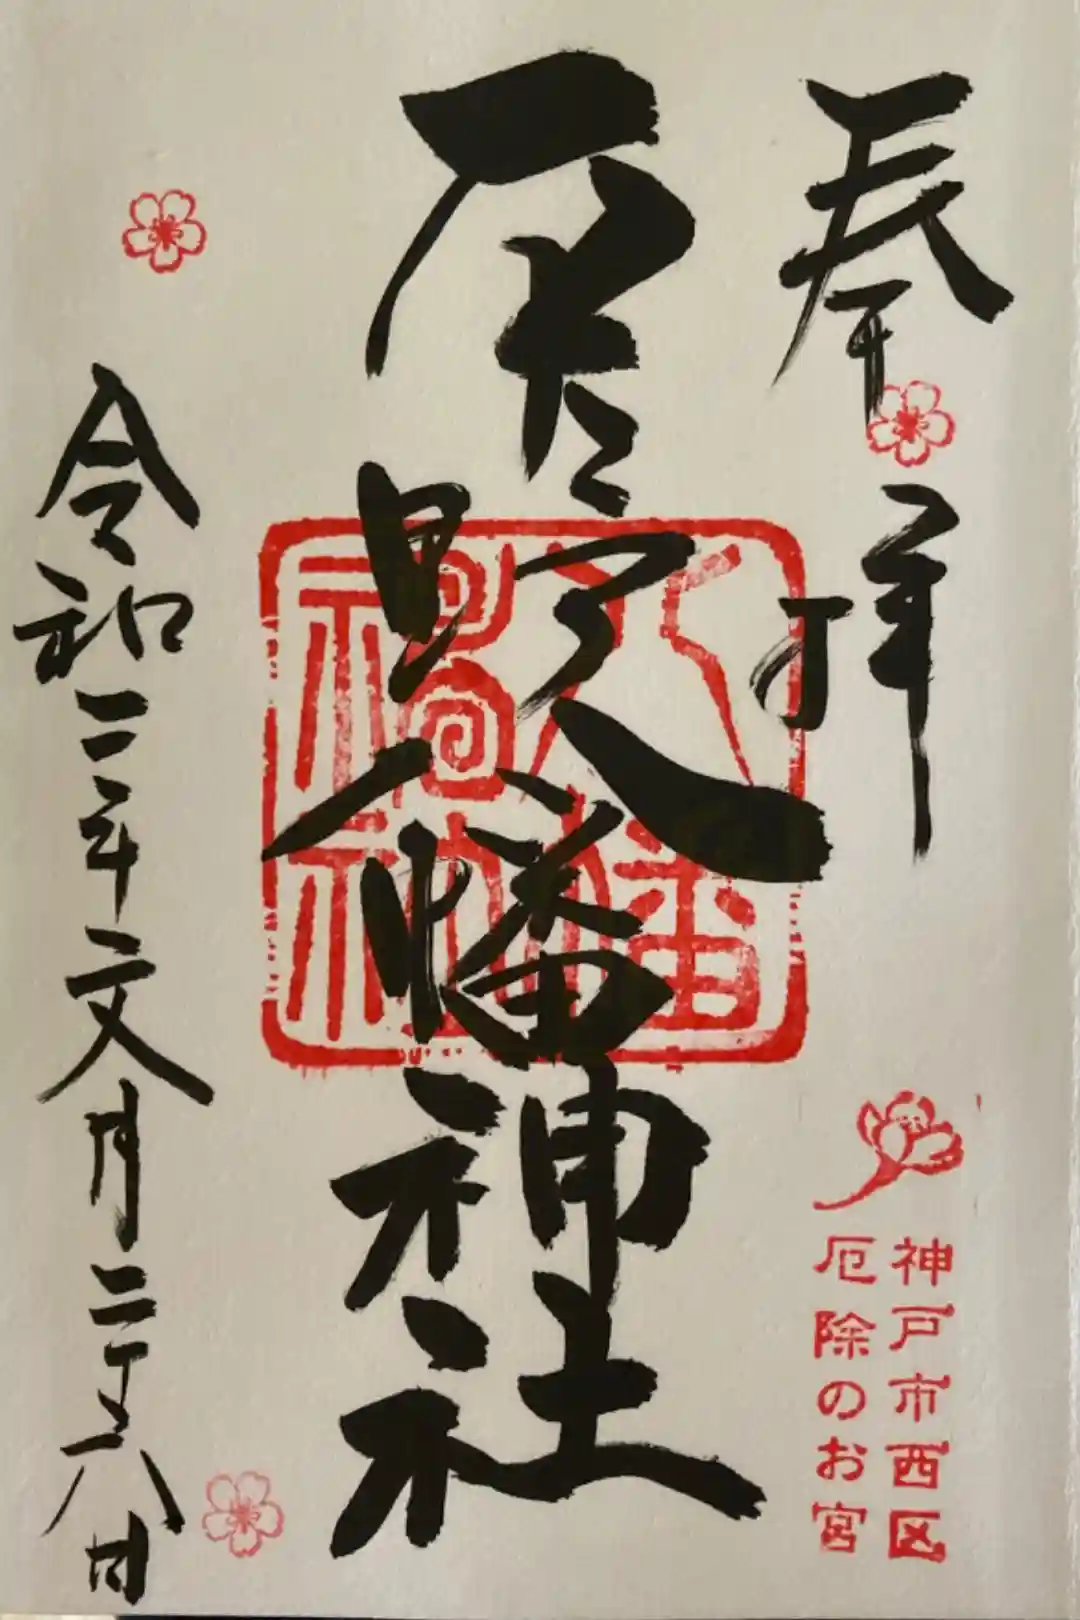 奉拝
八幡神社
八幡
神社
神戸市西区
厄除のお宮
令和二年文月二十六日